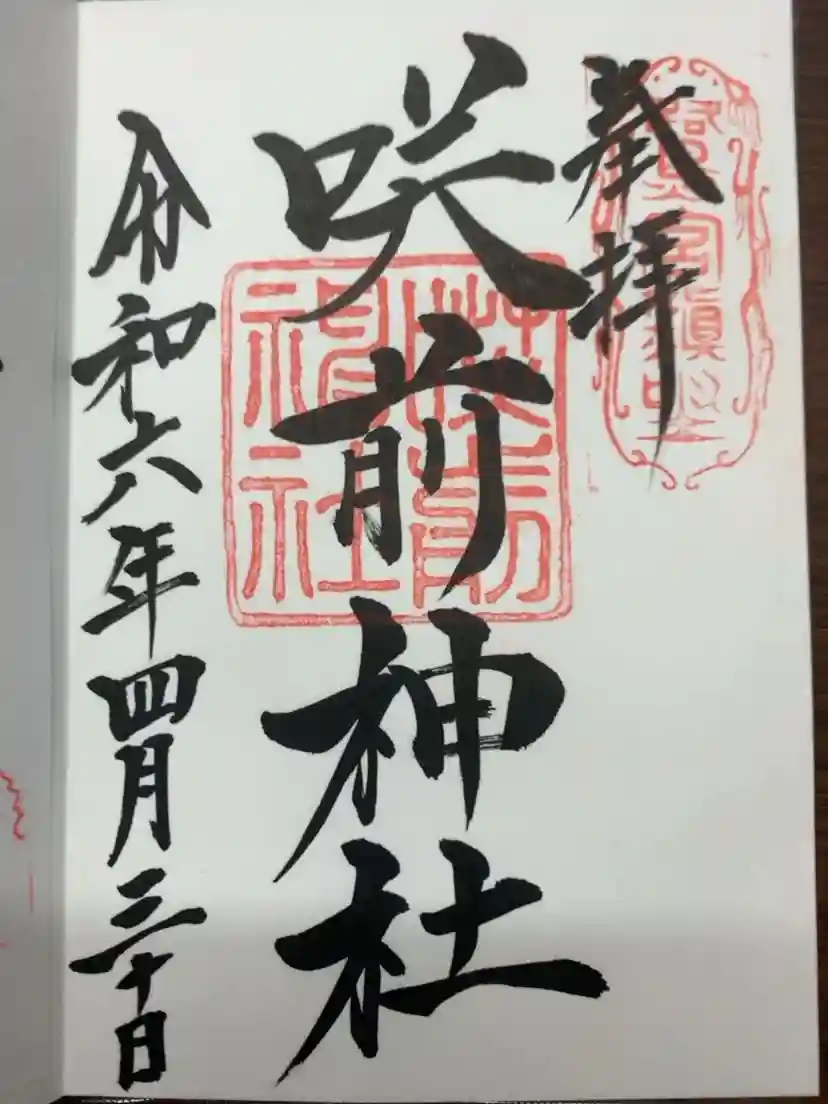 奉拝
咲前神社
令和六年四月三十日
咲前神社